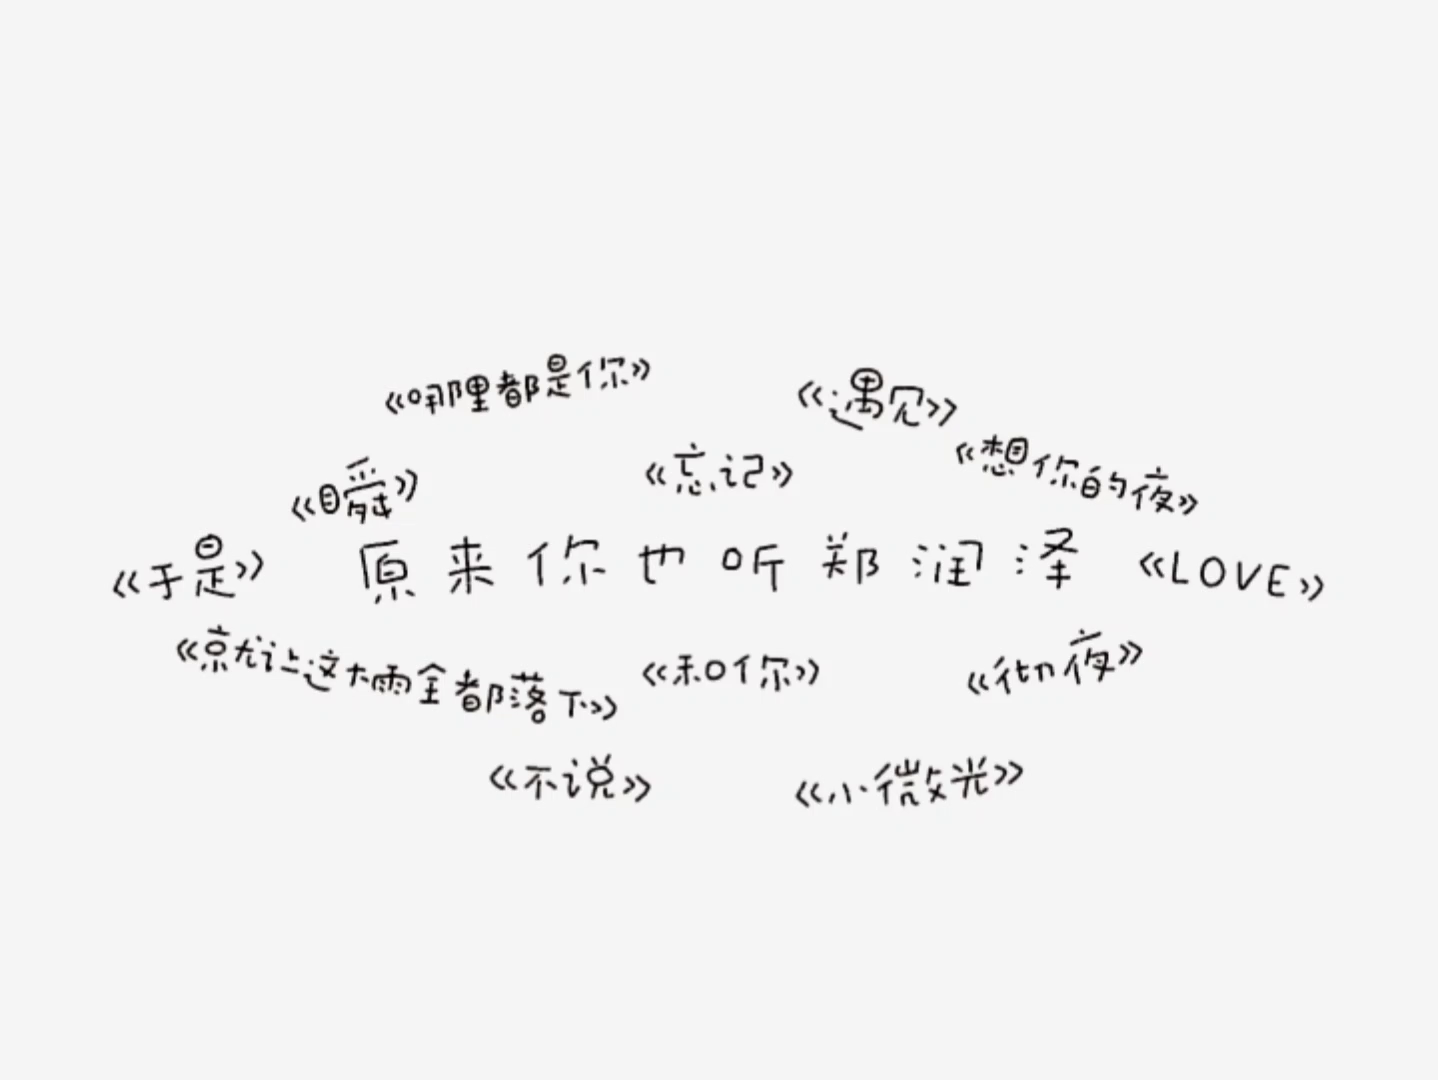 《哪里都是你》
《遇见》
《想你的夜》
《忘记》
《瞬》
《于是》
原来你也听郑润泽
《LOVE》
《就让这大雨全都落下》
《和你》
《彻夜》
《不说》
《小微光》